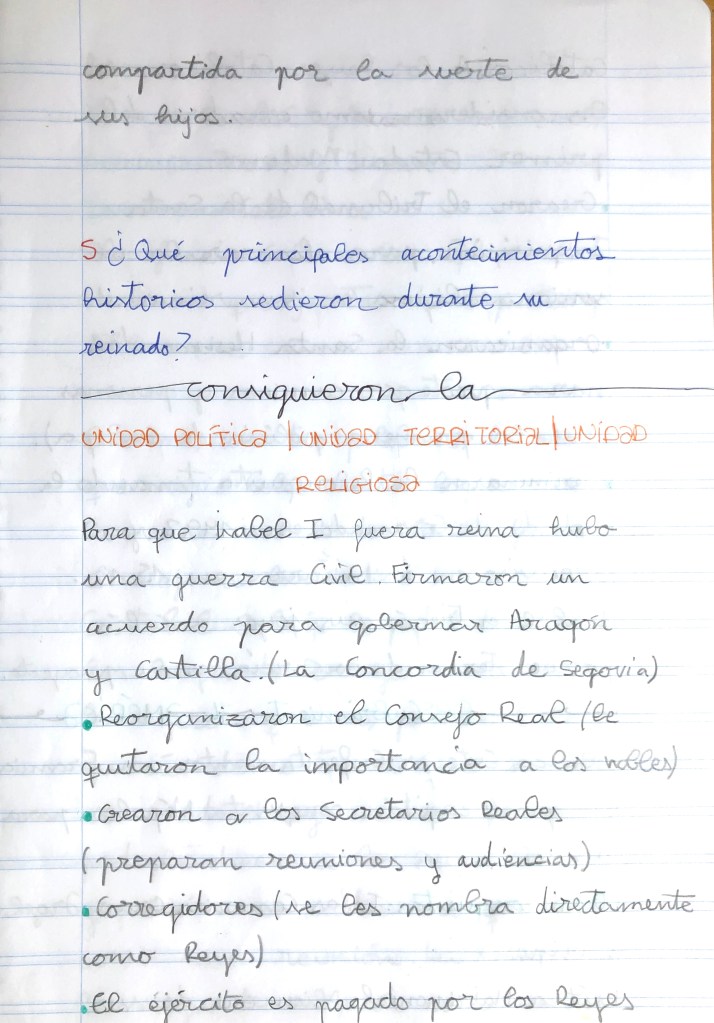 compartida por la suerte de
sus hijos.
5 ¿Qué principales acontecimientos
historicos sedieron durante su
reinado?
consiguieron la
UNIDAD POLÍTICA | UNIDAD TERRITORIAL | UNIDAD
RELIGIOSA
Para que Isabel I fuera reina hubo
una guerra Civil. Firmaron un
acuerdo para gobernar Aragón
y Castilla. (La Concordia de Segovia)
• Reorganizaron el Consejo Real (le
quitaron la importancia a los nobles)
• Crearon a los Secretarios Reales
(preparan reuniones y audiencias)
• Corregidores (se les nombra directamente
como Reyes)
• El ejército es pagado por los Reyes